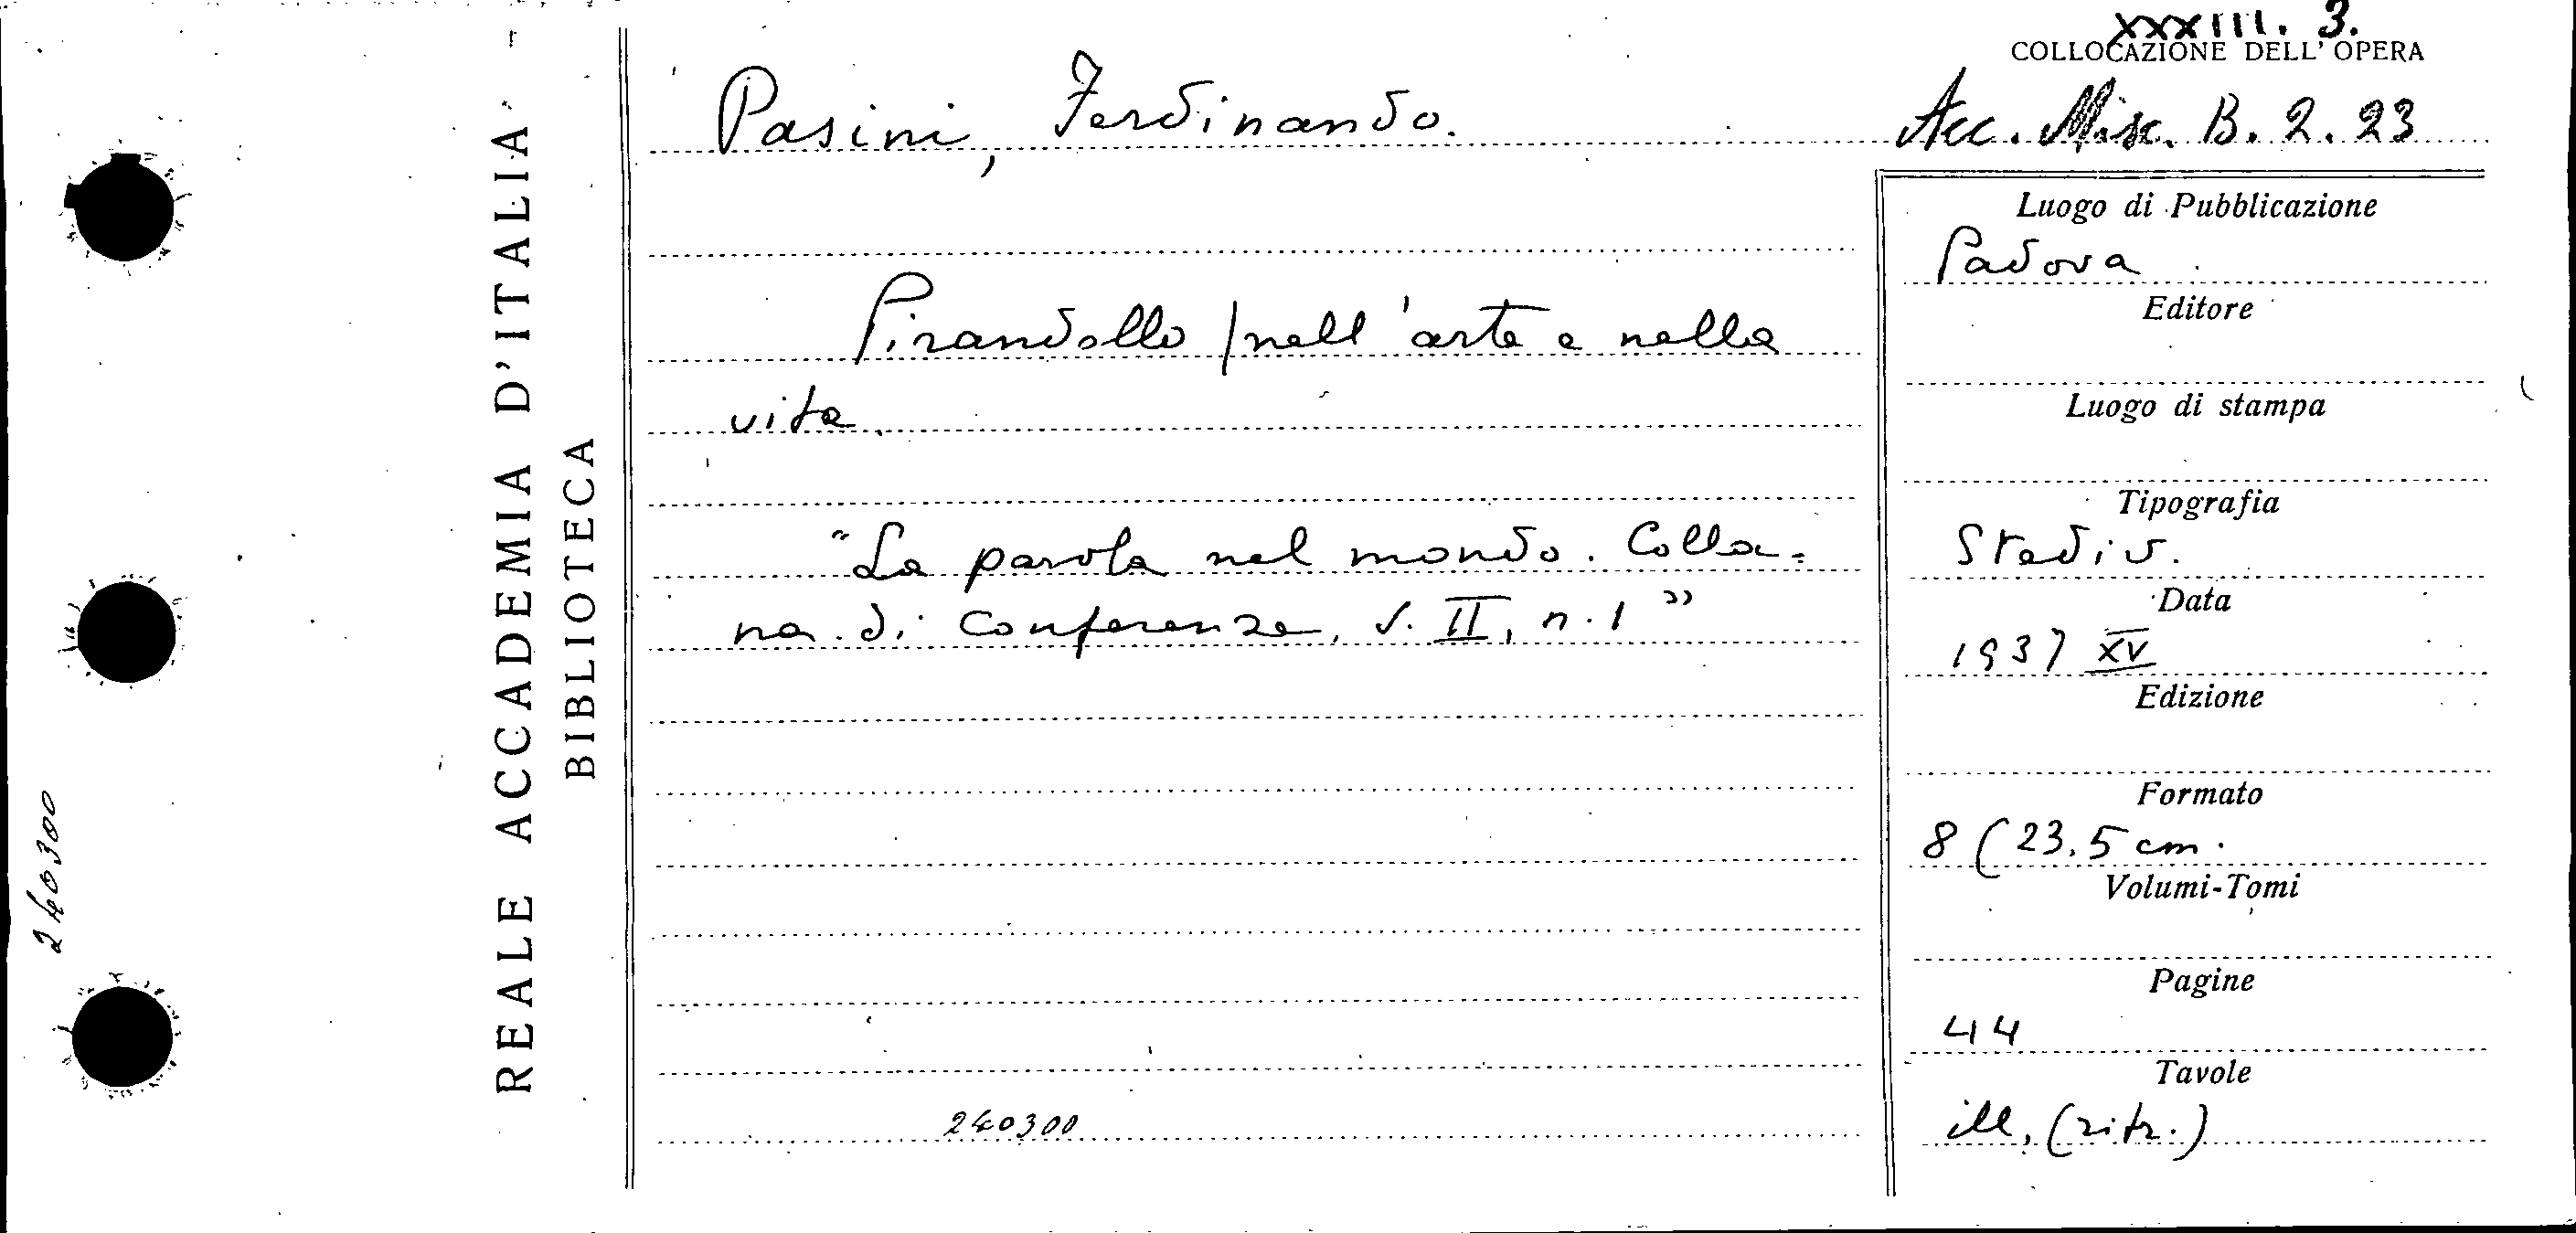 XXXIII. 3.
COLLOCAZIONE DELL'OPERA
Acc. Misc. B. 2. 23
REALE ACCADEMIA D'ITALIA
BIBLIOTECA
240300
Pasini, Ferdinando.
Pirandello / nell'arte e nella
vita.
"La parola nel mondo. Colla=
na di conferenze, v. II, n. 1"
240300
Luogo di Pubblicazione
Padova
Editore
Luogo di stampa
Tipografia
Stediv.
Data
1937 XV
Edizione
Formato
8 (23.5 cm.
Volumi-Tomi
Pagine
44
Tavole
ill. (ritr.)